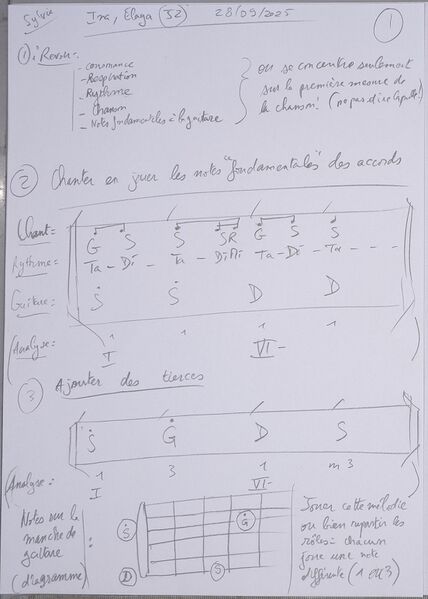 Sylvie
Ina, Elaga (J2) 28/09/2025
1
① "Revoir":
- consonance
- Respiration
- Rythme
- Chanson
- Notes fondamentales à la guitare
on se concentre seulement
sur la première mesure de
la chanson! (ne pas dire
② Chanter en jouer les notes "fondamentales" des accords
Chant:
G S S SR G S S
Rythme:
Ta - Di - Ta - Di Mi Ta - Di - Ta - - -
Guitare:
S S D D
Analyse:
1 1 1
I VI-
③ Ajouter des tierces
S G D S
Analyse:
1 3 1 m3
I VI-
Notes sur la
manche de
guitare
(diagramme)
:
S
G
D
S
Jouer cette mélodie
ou bien repartir les
rôles: chacun
joue une note
différente (1 ou 3)